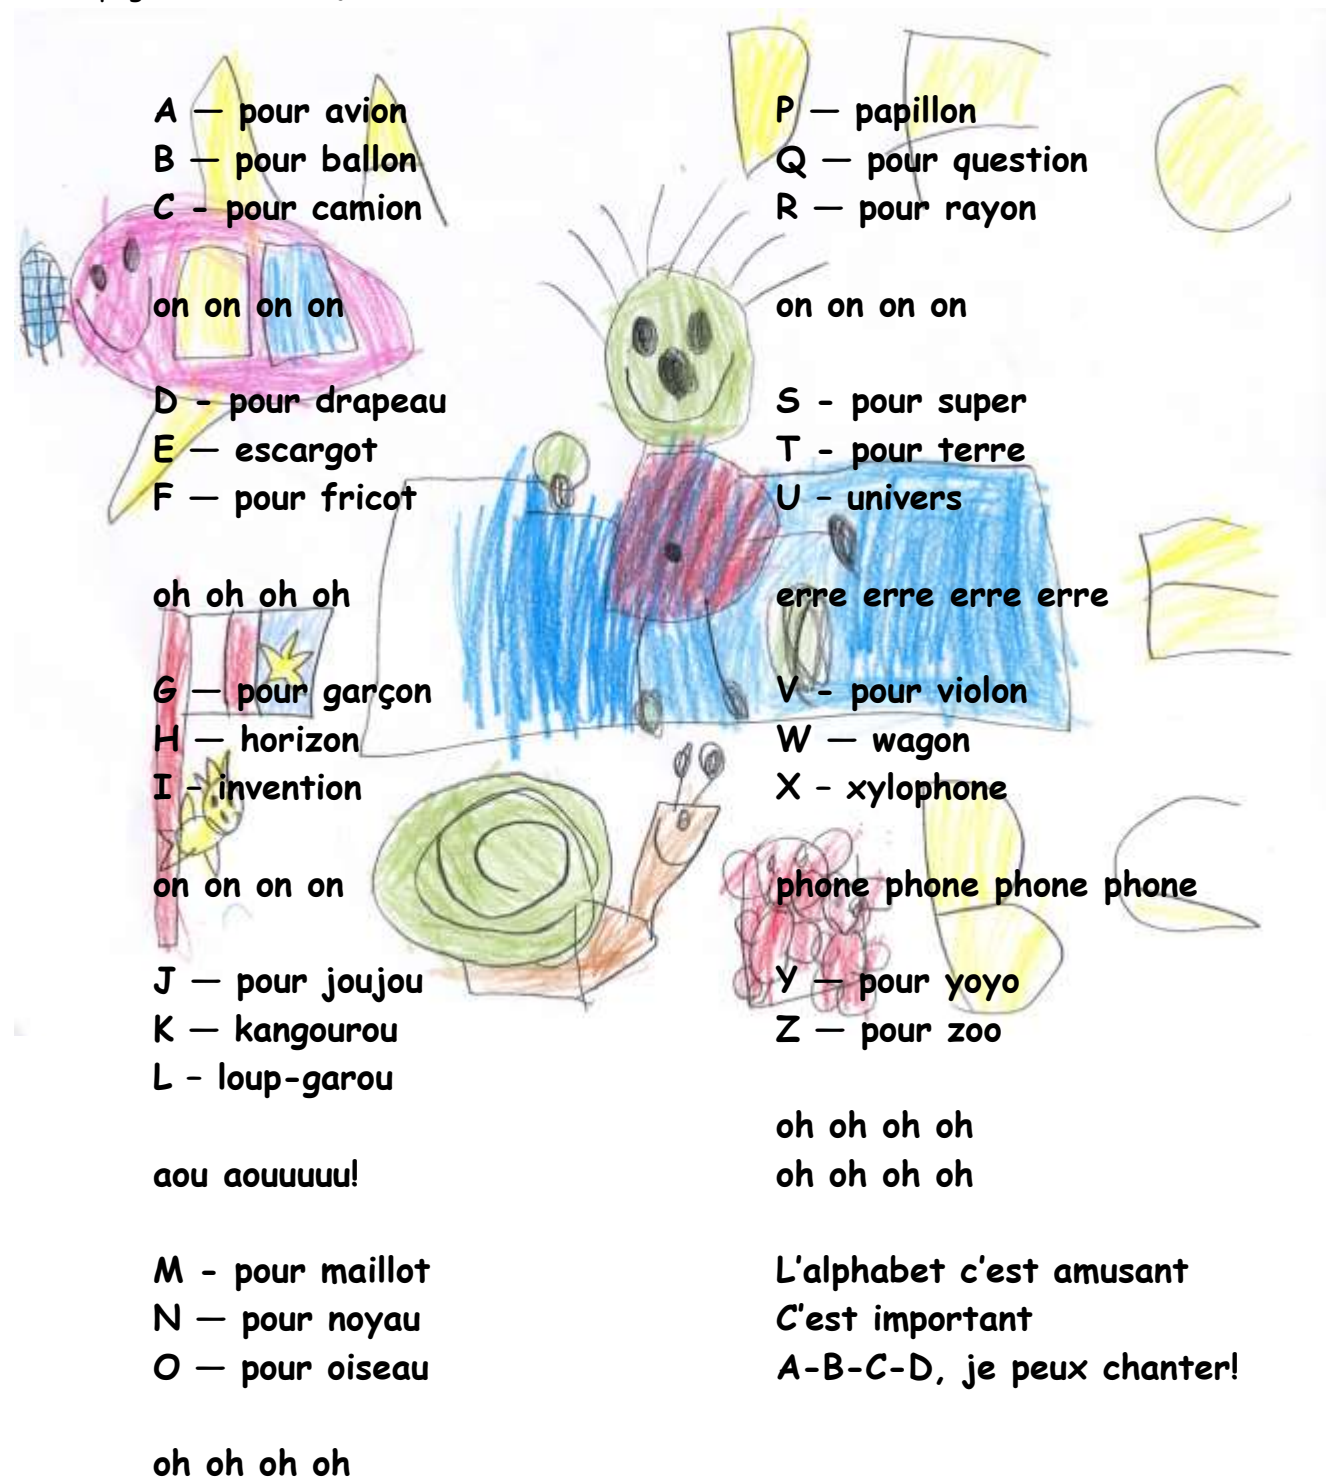 A — pour avion
B — pour ballon
C - pour camion
on on on on
D - pour drapeau
E — escargot
F — pour fricot
oh oh oh oh
G — pour garçon
H — horizon
I - invention
on on on on
J — pour joujou
K — kangourou
L – loup-garou
aou aouuuuu!
M - pour maillot
N — pour noyau
O — pour oiseau
oh oh oh oh
P — papillon
Q — pour question
R — pour rayon
on on on on
S - pour super
T - pour terre
U – univers
erre erre erre erre
V - pour violon
W — wagon
X – xylophone
phone phone phone phone
Y — pour yoyo
Z — pour zoo
oh oh oh oh
oh oh oh oh
L’alphabet c’est amusant
C’est important
A-B-C-D, je peux chanter!